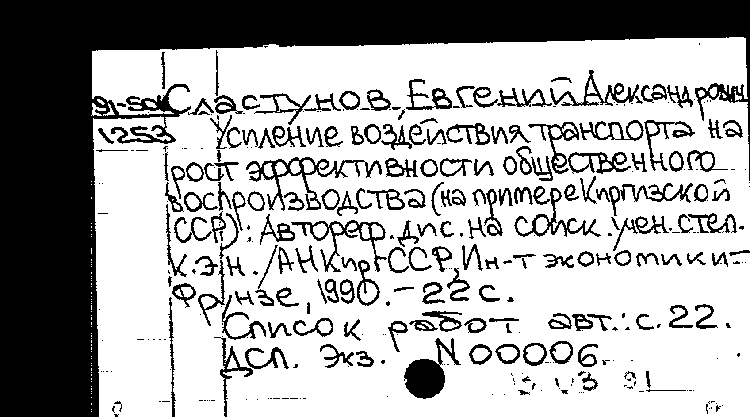 91-50к Сластунов, Евгений Александрович
1253 Усиление воздействия транспорта на
рост эффективности общественного
воспроизводства (на примере Киргизской
ССР): Автореф. дис. на соиск. учен. степ.
к.э.н. /АН КиргССР, Ин-т экономики.—
Фрунзе, 1990.—22 с.
Список работ авт.: с. 22.
ДСП. Экз. N 00006.